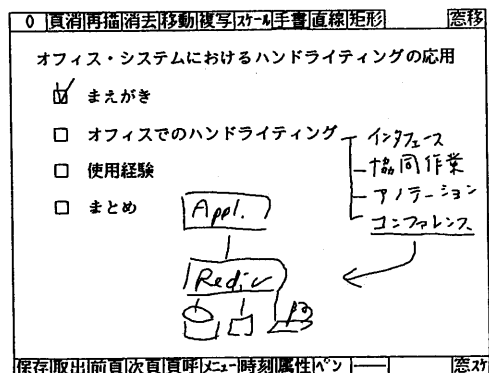 0 頁消 再描 消去 移動 複写 スケール 手書 直線 矩形 窓移
オフィス・システムにおけるハンドライティングの応用
まえがき
オフィスでのハンドライティング
インタフェース
協同作業
アノテーション
コンファレンス
使用経験
まとめ
Appl.
保存 取出 前頁 次頁 頁呼 メニュー 時刻 属性 ペン 窓スケ